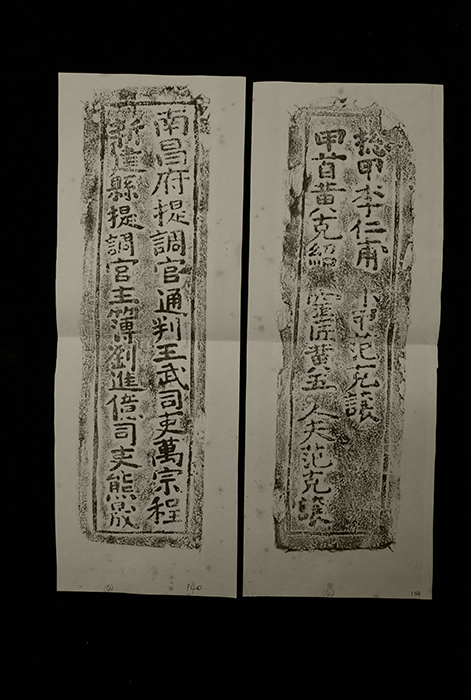 南昌府提調官通判王武司吏萬宗程
新建縣提調官主簿劉進倍司吏熊晟
140
総甲李仁甫 小甲范克讓
甲首黃克紹 窑匠黃五 人夫范克讓